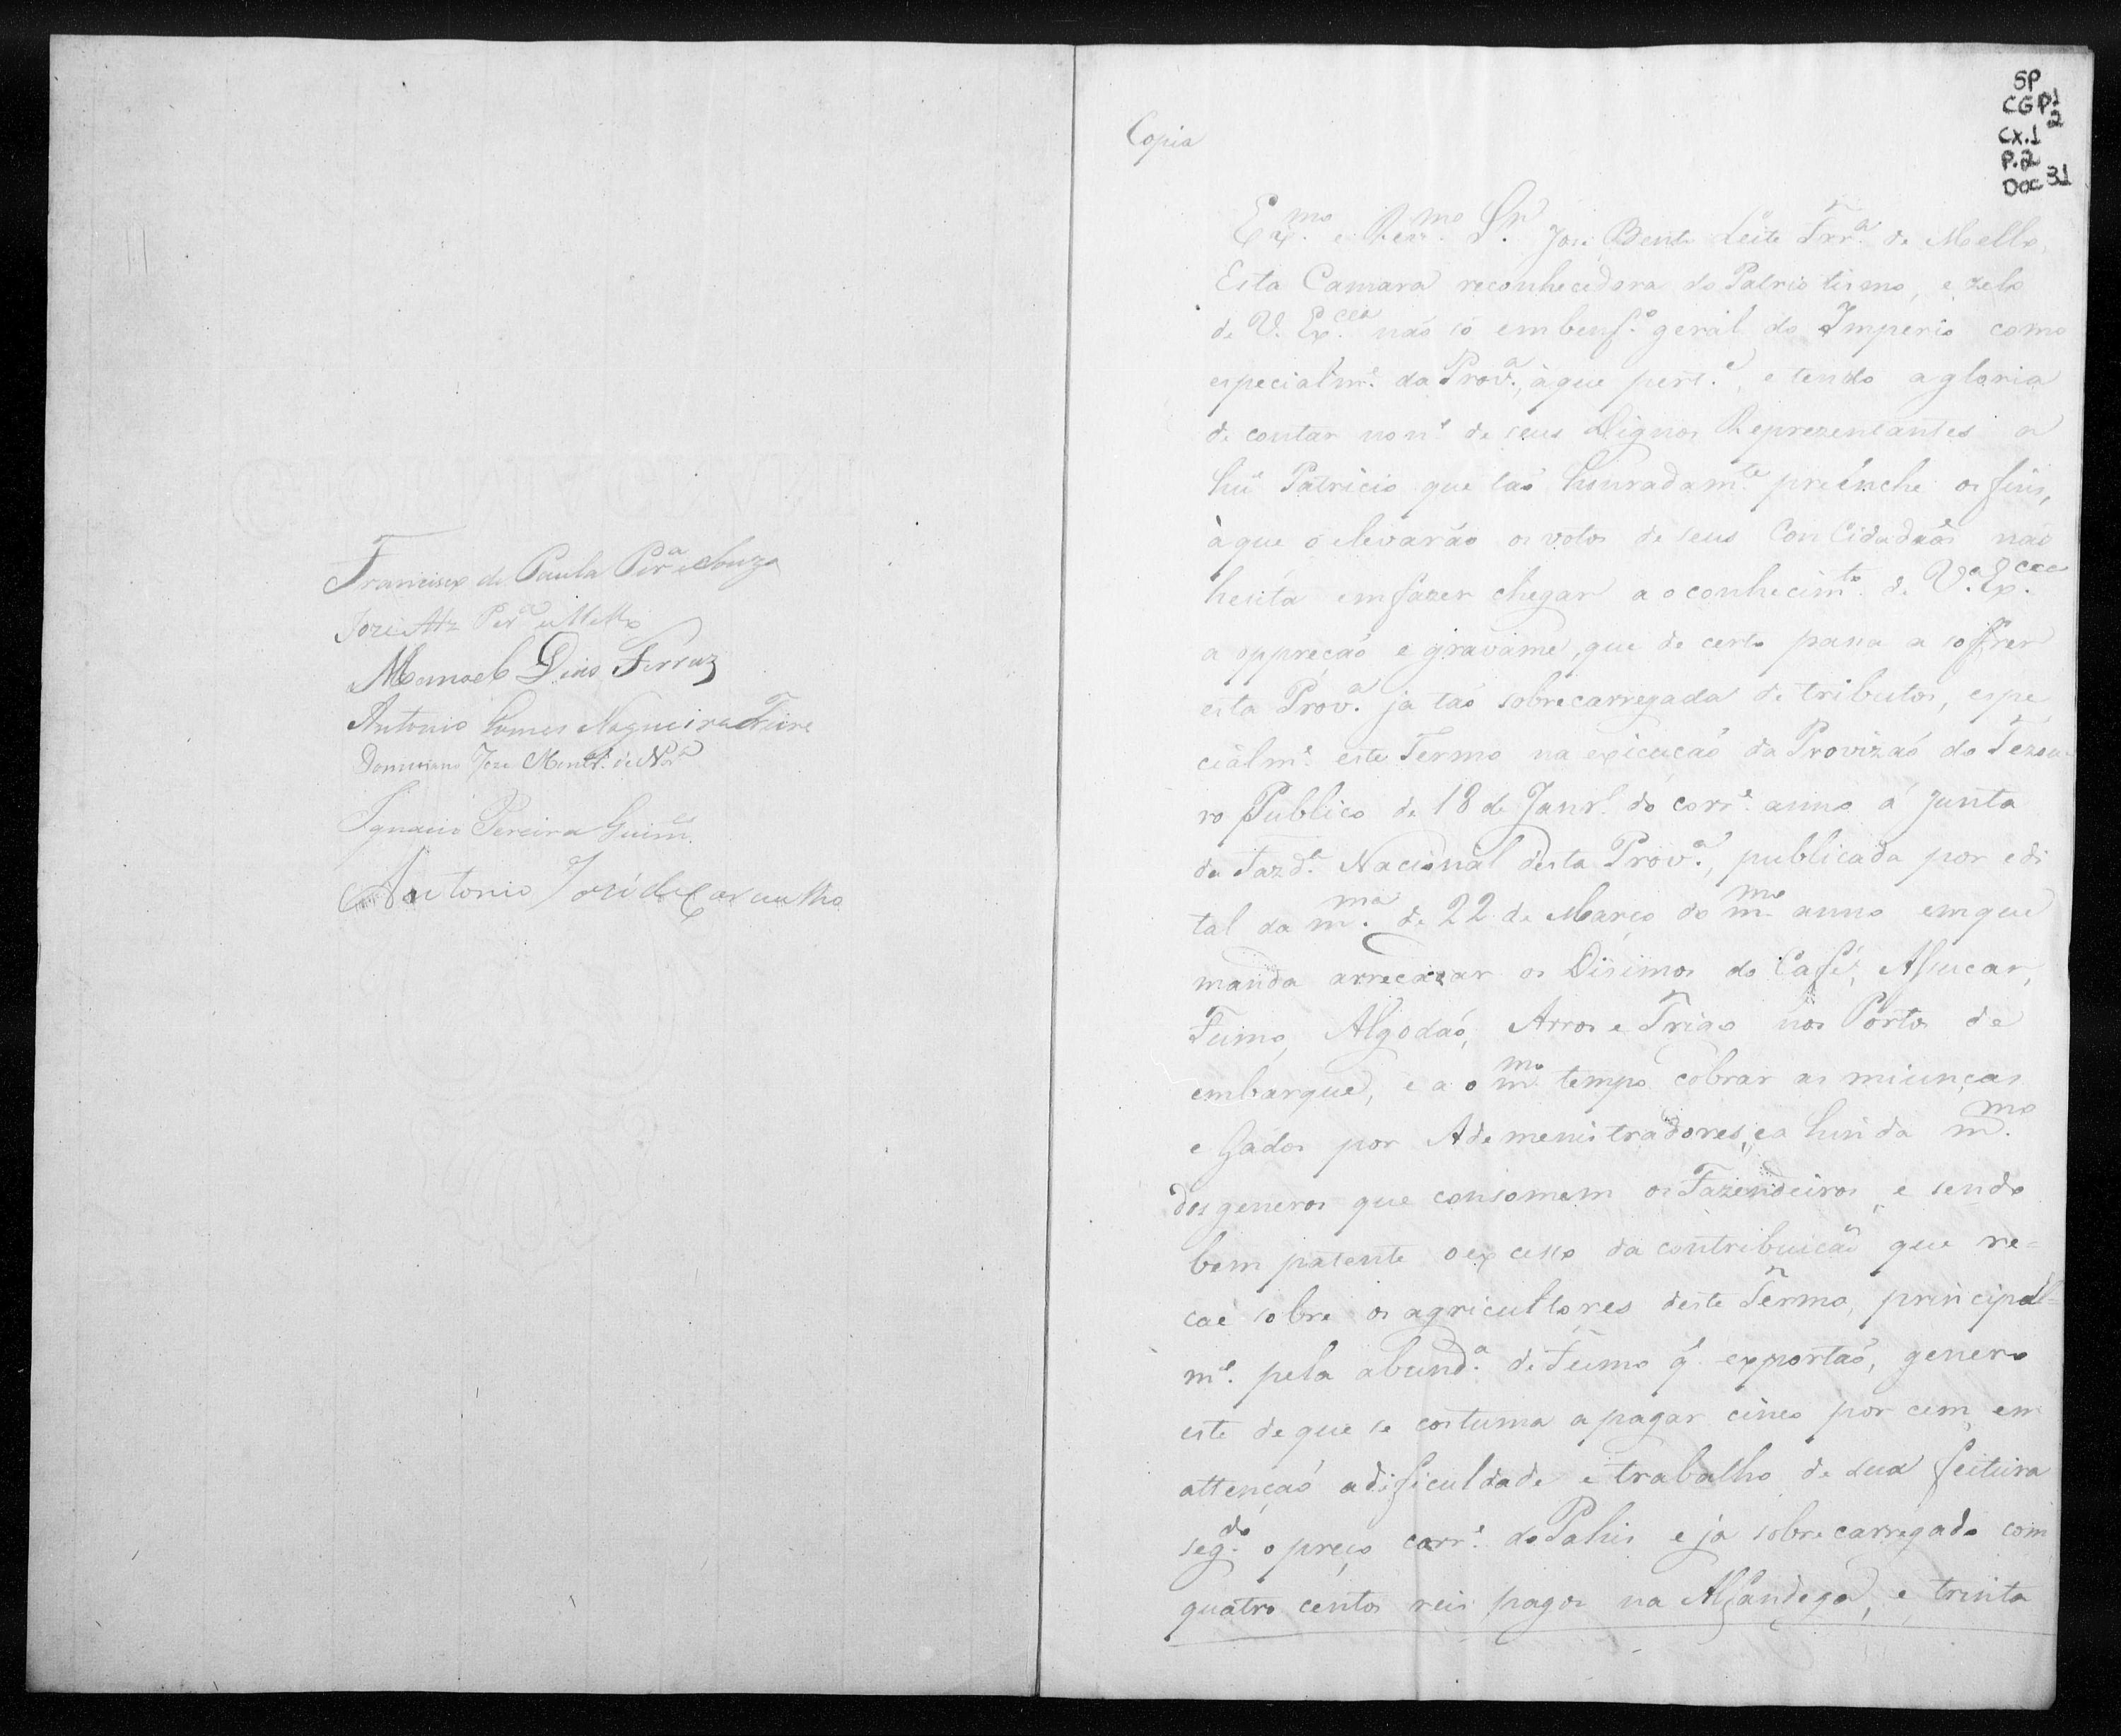 Francisco de Paula Per.ª e Souza
Joze Per.ª e Mello
Manoel Dias Ferraz
Antonio Gomes Nogueira Freire
Joze
Ignacio Pereira Guim.es
Antonio José de Carvalho
SP
CGP1
2
CX.1
P.2
Doc 31
Copia
Ex.mo e Rev.mo Snr. Jose Bento Leite Frr.ª de Mello,
Esta Camara reconhecedora do Patriotismo, e zelo
de V. Ex.cia não só em benf.º geral do Imperio como
especialm.e da Prov.ª, àque pert.e, e tendo a gloria
de contar no n.º de seus Dignos Reprezentantes a
hũ Patricio que taõ honradam.te preenche os fins,
àque o elevaraõ os votos de seus ConCidadaõs naõ
hesita em fazer chegar ao conhecim.to de V.ª Ex.cia
a oppreçaõ e gravame, que de certo passa a soffrer
esta Prov.ª ja taõ sobrecarregada de tributos, espe
cialm.e este Termo na exicuçaõ da Provizaõ do Tezou-
ro Publico de 18 de Janr.º do corr.e anno á Junta
da Fazd.ª Nacional desta Prov.ª, publicada por edi
tal da m.ma de 22 de Março do m.mo anno em que
manda arrecadar os Disimos do Café, Assucar,
Fumo, Algodaõ, Arros e Trigo nos Portos de
embarque, e ao m.mo tempo cobrar as miunças
e Gados por Ademenistradores, e a hinda m.mo
dos generos que consomem os Fazendeiros, e sendo
bem patente o excesso da contribuicaõ que re=
cae sobre os agricultores deste Termo, principal=
m.e pela abund.ª de Fumo q.e exportaõ, genero
este de que se costuma a pagar cinco por cem em
attençaõ a dificuldade e trabalho de sua feitura
seg.do o preço corr.e do Pahis e ja sobrecarregado com
quatro centos reis pagos na Alfandega, e trinta